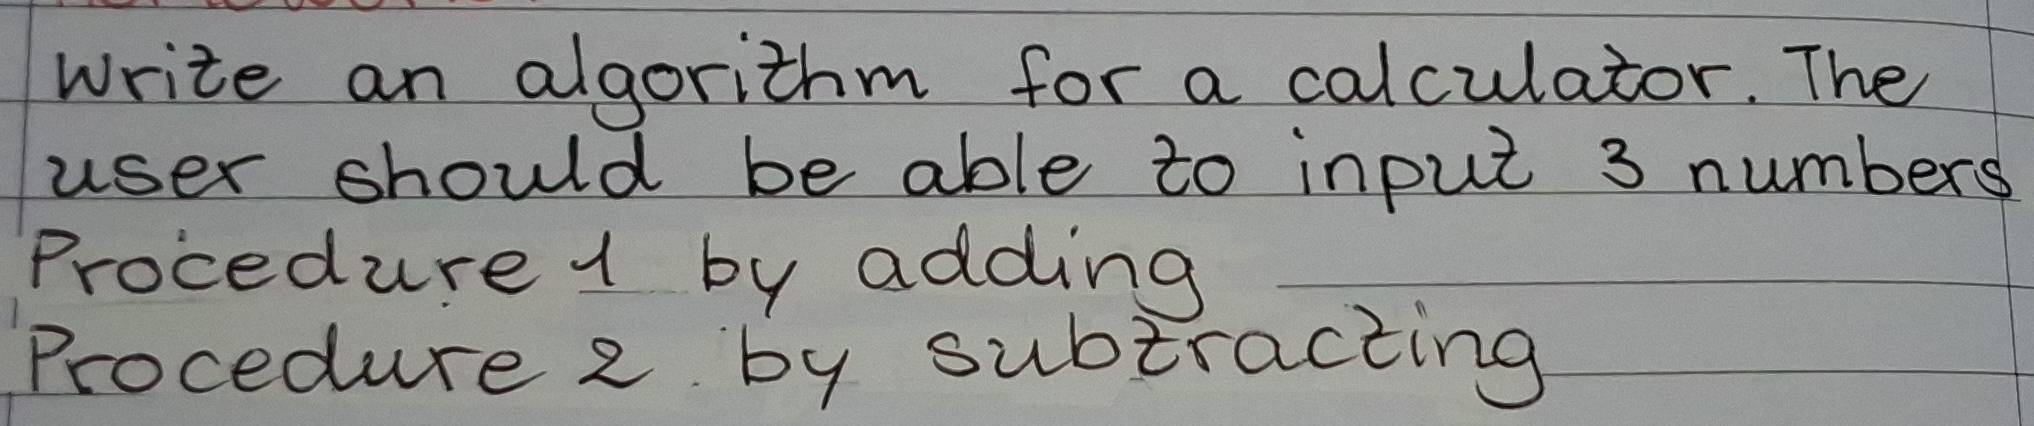 Write an algorithm for a calculator. The
user should be able to input 3 numbers
Procedure 1 by adding
Procedure 2 by subtracting